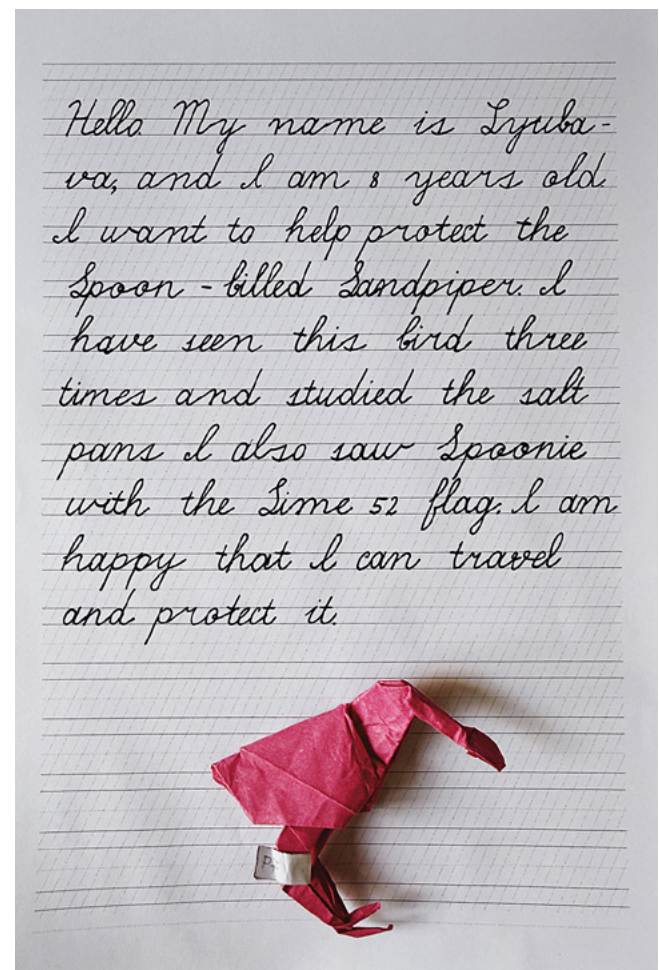 Hello. My name is Lyuba-
va, and I am 8 years old
I want to help protect the
Spoon - billed Sandpiper. I
have seen this bird three
times and studied the salt
pans I also saw Spoonie
with the Lime 52 flag. I am
happy that I can travel
and protect it.